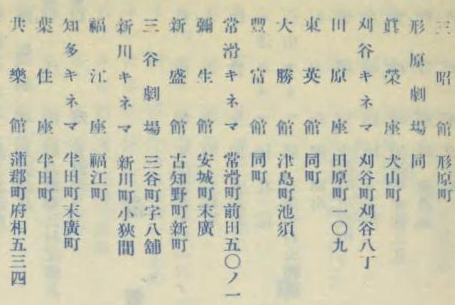 三昭館 形原町
形原劇場 同
眞榮座 犬山町
刈谷キネマ 刈谷町刈谷八丁
田原座 田原町一〇九
東英館 同町
大勝館 津島町池須
豐富館 同町
常滑キネマ 常滑町前田五〇ノ一
彌生館 安城町末廣
新盛館 古知野町新町
三谷劇場 三谷町字八舗
新川キネマ 新川町小狹間
福江座 福江町
知多キネマ 半田町末廣町
葉住座 半田町
共樂館 蒲郡町府相五三四